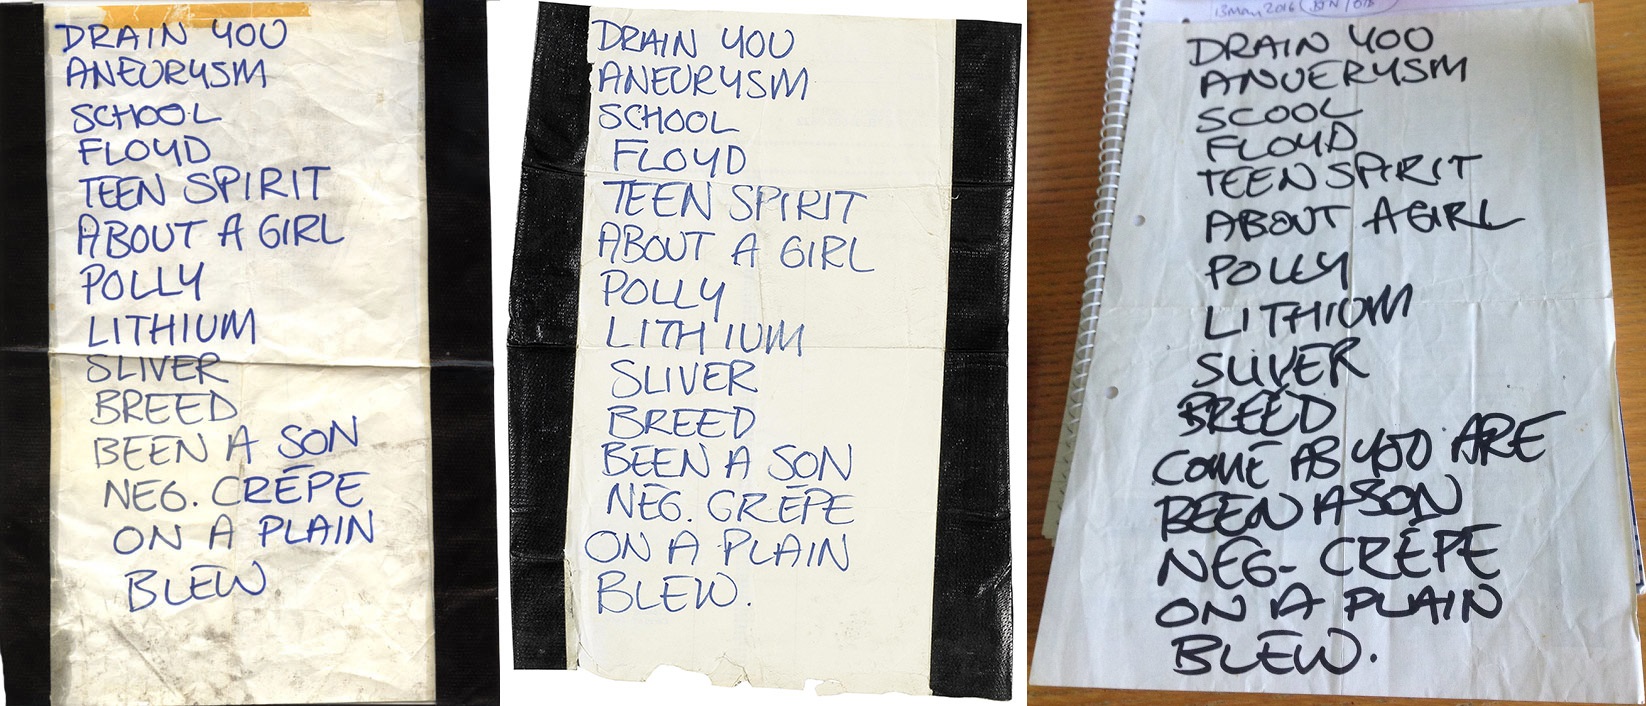 DRAIN YOU
ANEURYSM
SCHOOL
FLOYD
TEEN SPIRIT
ABOUT A GIRL
POLLY
LITHIUM
SLIVER
BREED
BEEN A SON
NEG. CRĒPE
ON A PLAIN
BLEW
DRAIN YOU
ANEURYSM
SCHOOL
FLOYD
TEEN SPIRIT
ABOUT A GIRL
POLLY
LITHIUM
SLIVER
BREED
BEEN A SON
NEG. CRĒPE
ON A PLAIN
BLEW.
13 May 2016
DRAIN YOU
ANUERYSM
SCOOL
FLOYD
TEEN SPIRIT
ABOUT A GIRL
POLLY
LITHIUM
SLIVER
BREED
COME AS YOU ARE
BEEN A SON
NEG- CRĒPE
ON A PLAIN
BLEW.